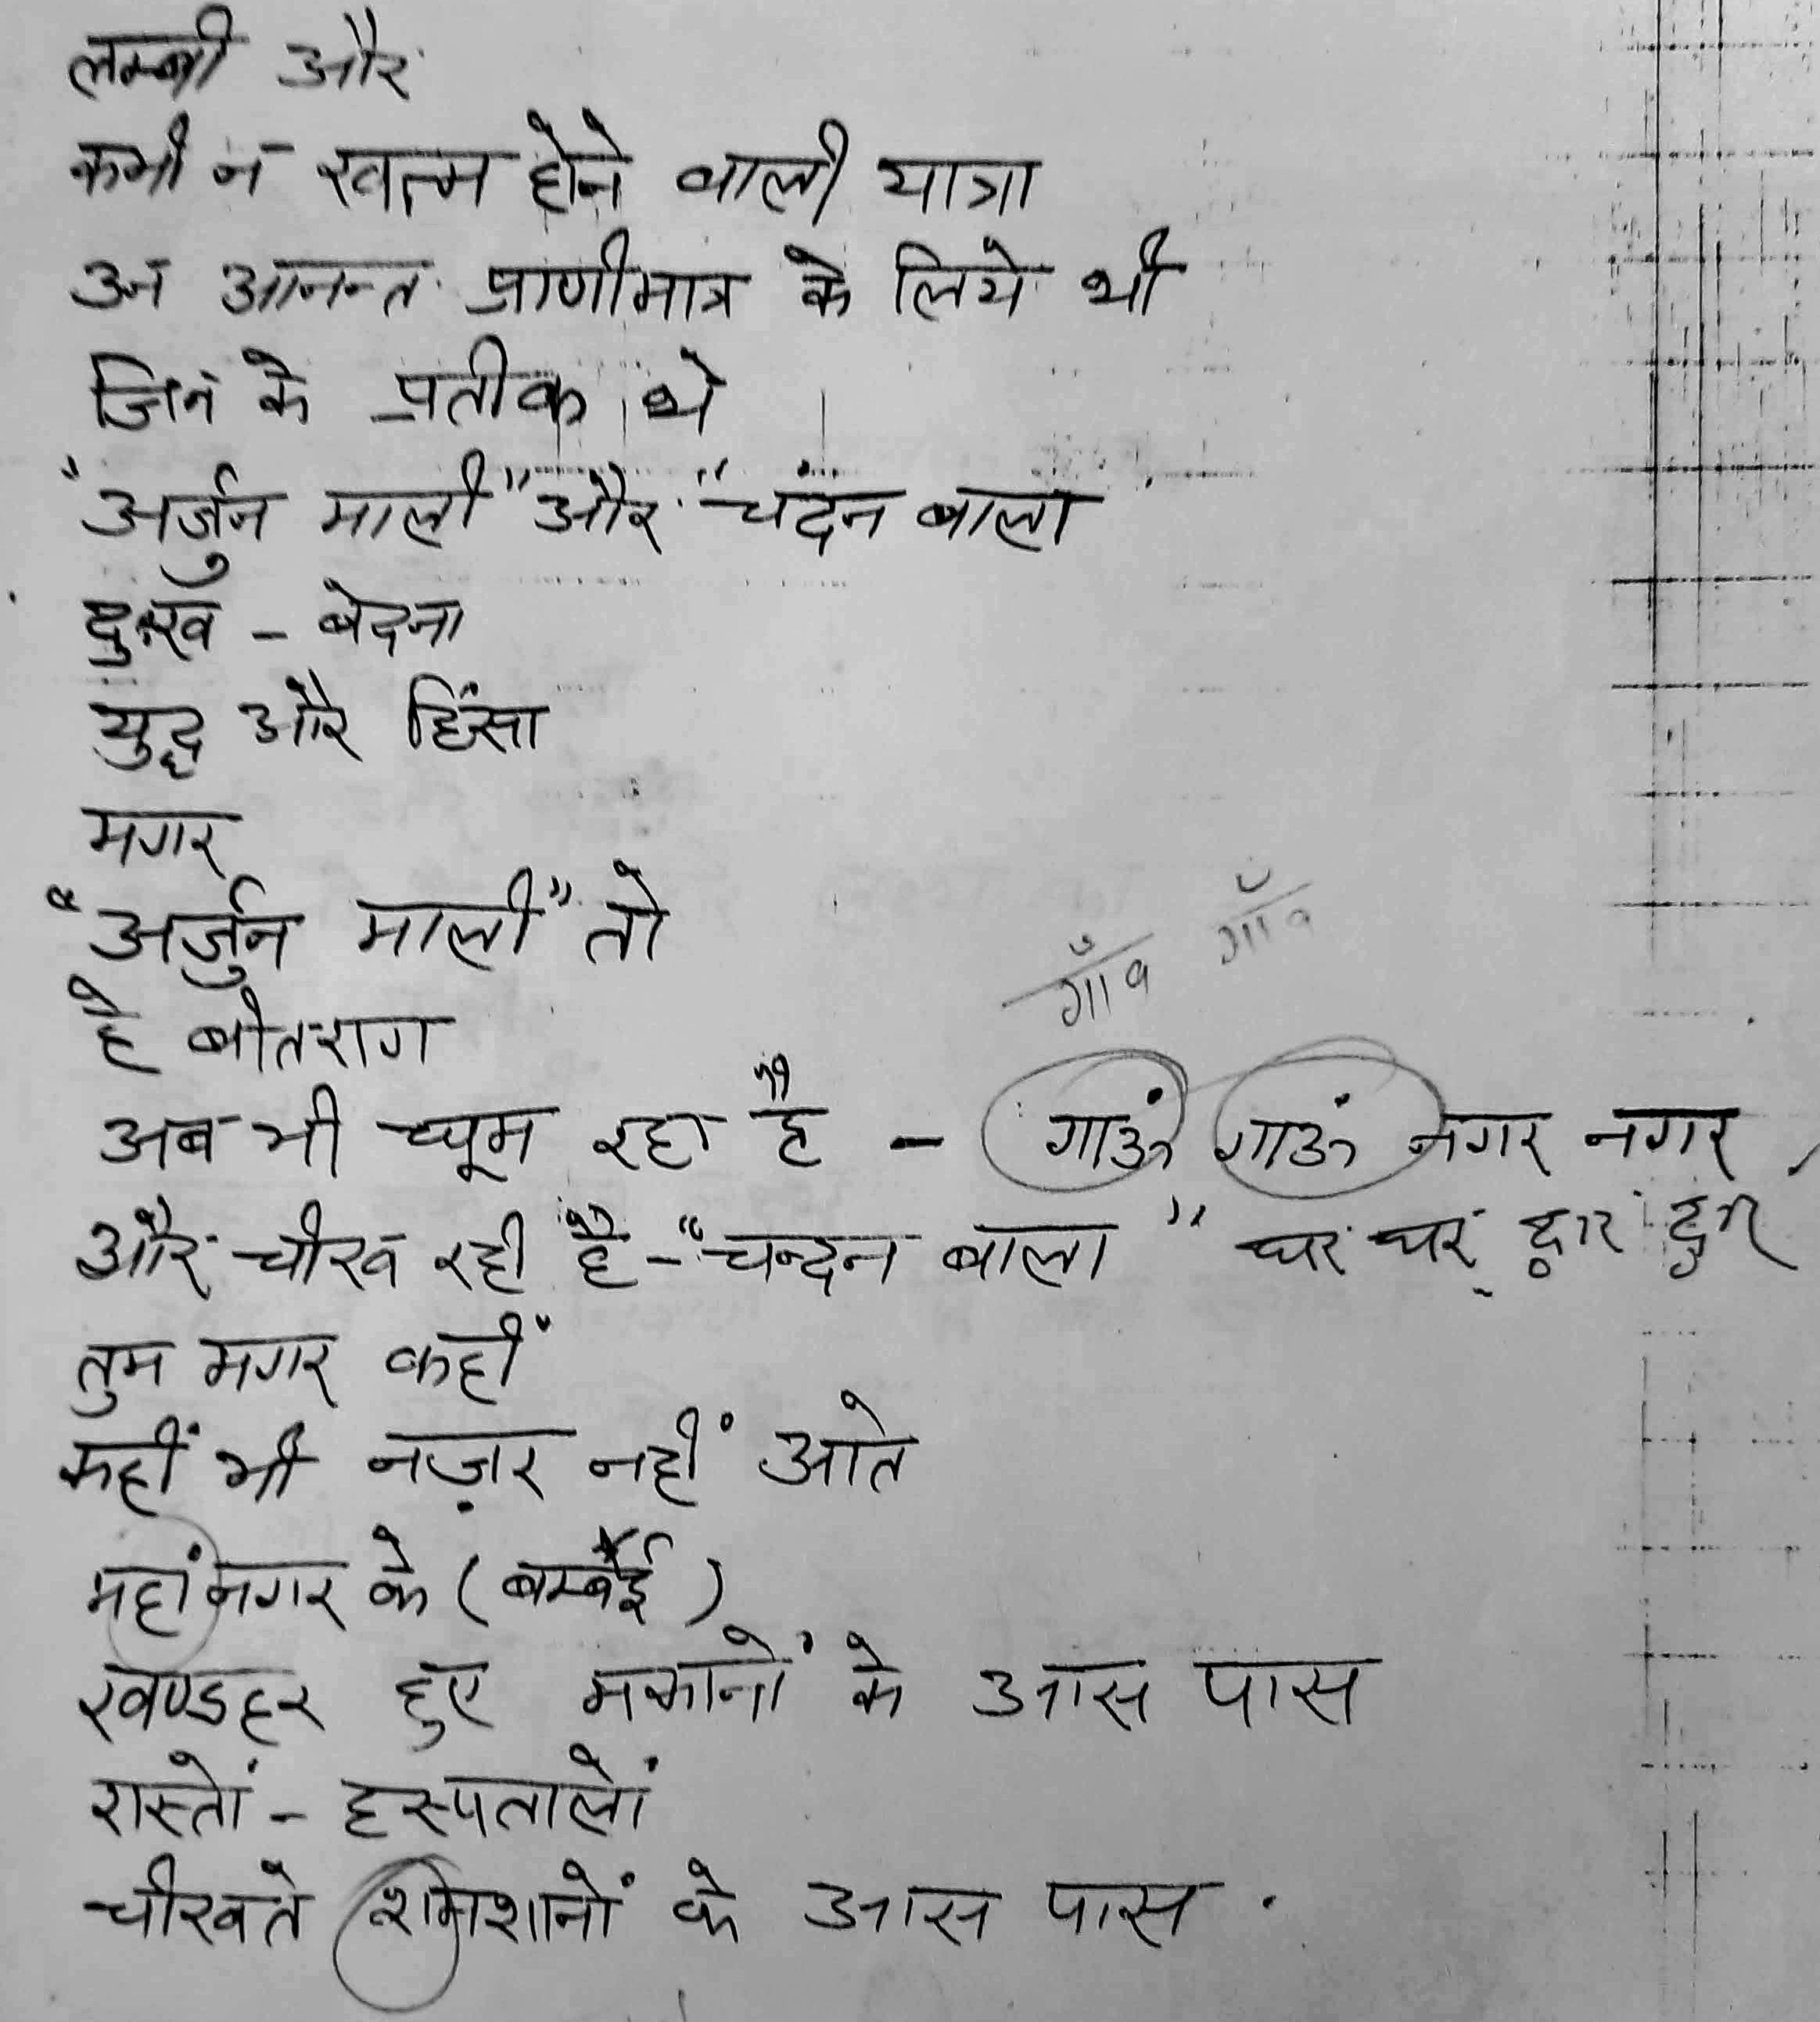 लम्बी और
कभी न खत्म होने वाली यात्रा
उन आनन्त प्राणीमात्र के लिये थी
जिन के प्रतीक थे
"अर्जुन माली" और "चंदन बाला
दुःख - वेदना
युद्ध और हिंसा
मगर
"अर्जुन माली" तो
गाँव गाँव
हे वीतराग
अब भी घूम रहा है - गाऊं गाऊं नगर नगर,
और चीख रही है - "चन्दन बाला" घर घर द्वार द्वार
तुम मगर कहीं
कहीं भी नज़र नहीं आते
महांनगर के (बम्बई)
खण्डहर हुए मकानों के आस पास
रास्तों - हस्पतालों
चीखते शमशानों के आस पास .